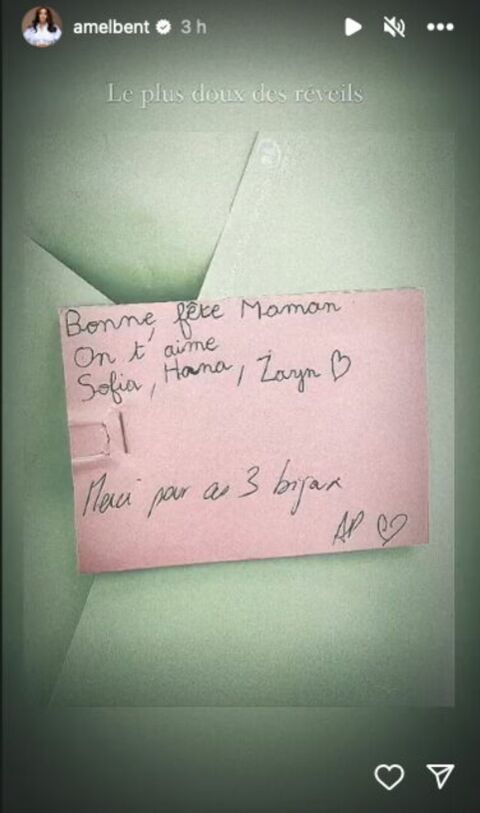 amelbent 3 h
Le plus doux des réveils
Bonne fête Maman
On t'aime
Sofia, Hana, Zayn
Merci pour ces 3 bijoux
AP